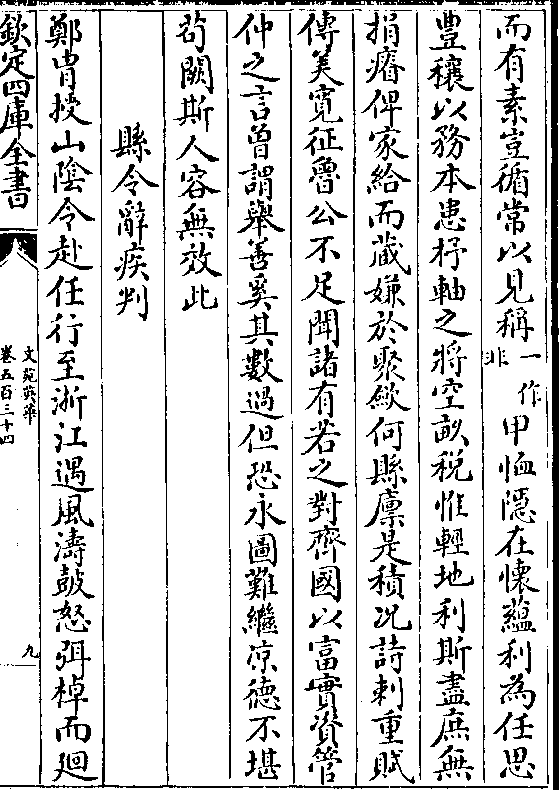 而有素豈循常以見稱一作非甲恤隱在懷藴利為任思
豐穰以務本患杼軸之將空畝税惟輕地利斯盡庶無
捐瘠俾家給而蔵嫌於聚歛何縣廪是積况詩刺重賦
傳美寛征魯公不足聞諸有若之對齊國以富實資管
仲之言曽謂舉善奚其數過但恐永圖難繼凉德不堪
苟闕斯人容無效此
縣令辭疾判
鄭胄授山隂令赴任行至浙江遇風濤鼓怒弭棹而廻
欽定四庫全書
文苑英華
卷五百三十四
九